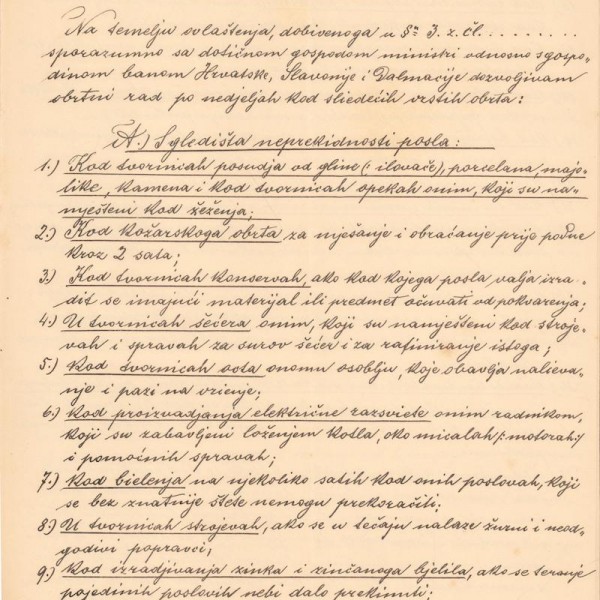 Na temelju ovlaštenja, dobivenoga u §u 3. z. čl. . . . . . . . . .
sporazumno sa dotičnom gospodom ministri odnosno s gospo-
dinom banom Hrvatske, Slavonije i Dalmacije dozvoljivam
obrtni rad po nedjeljah kod sliedećih vrstih obrta:
A.) S gledišta neprekidnosti posla:
1.) Kod tvornicah posudja od gline (: ilovače), porcelana, majo-
like, kamena i kod tvornicah opekah onim, koji su na-
mješteni kod žeženja;
2.) Kod kožarskoga obrta za mješanje i obraćanje prije podne
kroz 2 sata;
3.) Kod tvornicah konservah, ako kod kojega posla valja izra-
dit se imajući materijal ili predmet očuvati od pokvarenja;
4.) U tvornicah šećera onim, koji su namješteni kod stroje-
vah i spravah za surov šećer i za rafiniranje istoga;
5.) Kod tvornicah octa onomu osoblju, koje obavlja nalieva-
nje i pazi na vrienje;
6.) Kod proizvadjanja električne razsviete onim radnikom,
koji su zabavljeni loženjem kotla, oko micalah /: motorah:/
i pomoćnih spravah;
7.) Kod bielenja na njekoliko satih kod onih poslovah, koji
se bez znatnije štete nemogu prekoračiti;
8.) U tvornicah strojevah, ako se u tečaju nalaze žurni i neod-
godivi popravci;
9.) Kod izradjivanja zinka i zinčanoga bjelila, ako se teranje
pojedinih poslovih nebi dalo prekinuti;